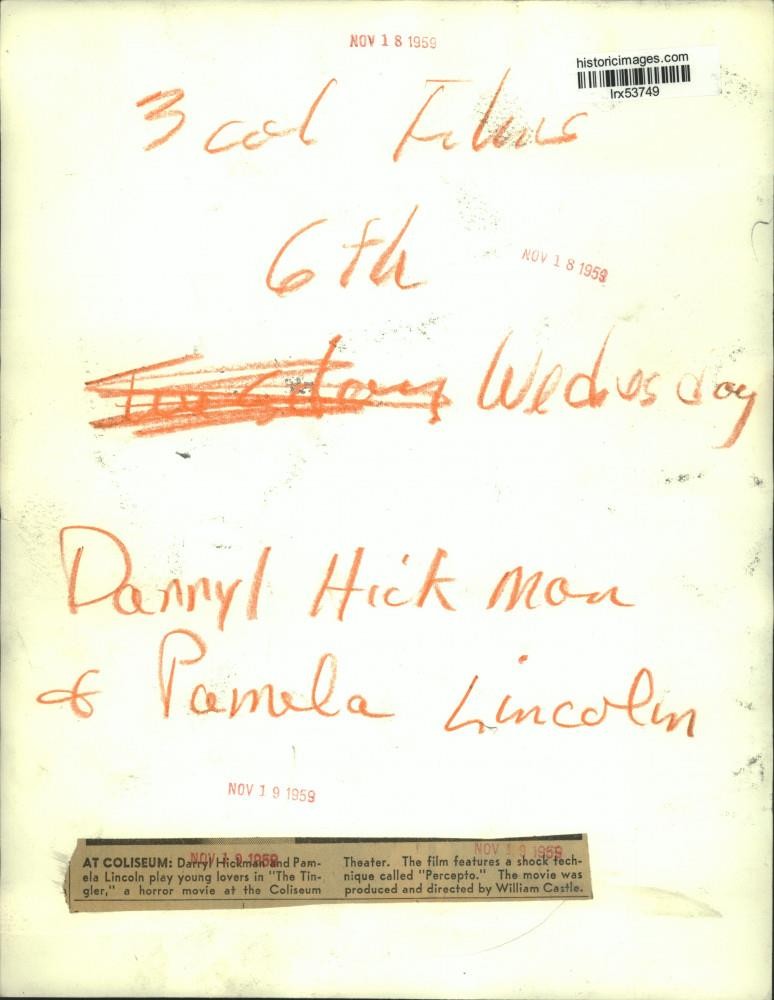 NOV 18 1959
historicimages.com
lrx53749
3 col Films
6th
NOV 18 1959
Tuesday Wednesday
Darryl Hickman
& Pamela Lincoln
NOV 19 1959
NOV 19 1959
NOV 19 1959
AT COLISEUM: Darryl Hickman and Pam-
ela Lincoln play young lovers in "The Tin-
gler," a horror movie at the Coliseum
Theater. The film features a shock tech-
nique called "Percepto." The movie was
produced and directed by William Castle.